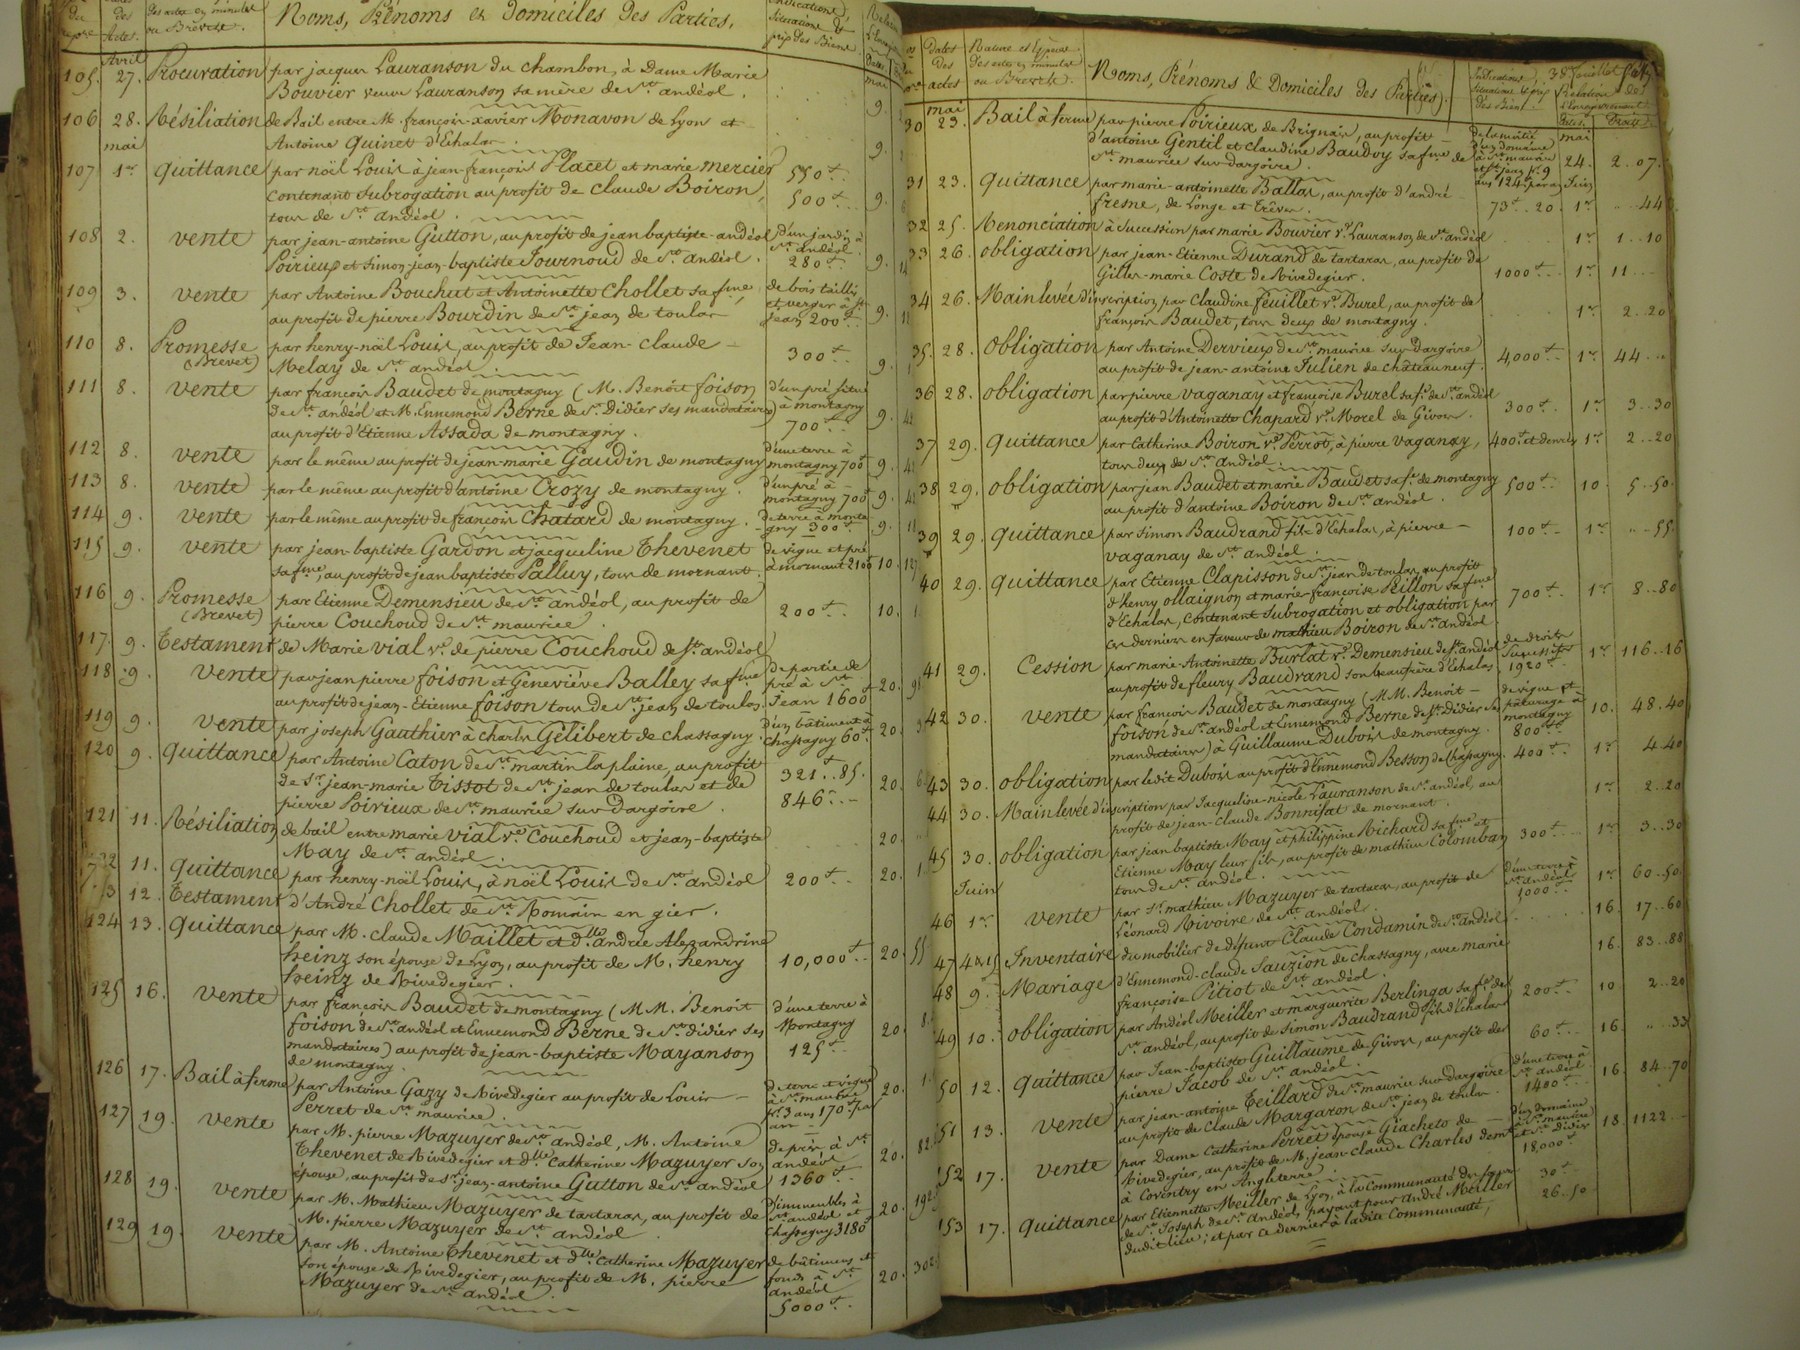 Noms, Prénoms et Domiciles des Parties,
Avril
105. 27. Procuration par jacques Lauranson du chambon, à Dame Marie
Bouvier veuve Lauranson sa mère de St. andéol.
106 28. Résiliation de Bail entre M. françois-xavier Monavon de Lyon et 9.
Antoine Quinet d'Echalas.
mai
107 1er quittance par noël Louis à jean-françois Placet et marie mercier 550
contenant subrogation au profit de claude Boiron, 500 9.
tous de St. andéol.
108 2. vente par jean-antoine Gutton, au profit de jean baptiste-andéol d'un jardin à
Poirieux et Simon jean-baptiste Journoud de St. andéol. St. andéol 280 9.
109 3. vente par Antoine Bouchut et Antoinette Chollet sa fme, de bois taillis
au profit de pierre Bourdin de St. jean de toulas et verger à St. jean 200 9.
110 8. Promesse par henry-noël Louis, au profit de Jean-Claude
(Brevet) Melay de St. andéol. 300 9.
111 8. vente par françois Baudet de montagny (M. Benoît foison d'un pré situé
de St. andéol et M. Ennemond Berne de St. Didier ses mandataires) à montagny 9.
au profit d'Etienne Assada de montagny. 700
112 8. vente par le même au profit de jean-marie Gaudin de montagny d'une terre à montagny 700 9.
113 8. vente par le même au profit d'antoine Crozy de montagny. d'un pré à montagny 700 9.
114 9. vente par le même au profit de françois Chatard de montagny. de terre à montagny 300 9.
115 9. vente par jean-baptiste Gardon et jacqueline Thevenet de vigne et pré
sa fme, au profit de jean baptiste Palluy, tous de mornant. à mornant 2100 10.
116 9. Promesse par Etienne Demensieu de St. andéol, au profit de
(Brevet) pierre Couchoud de St. maurice. 200 10.
117. 9. Testament de Marie vial ve. de pierre Couchoud de St. andéol
118 9. vente par jean pierre foison et Geneviève Balley sa fme de partie de pré à St.
au profit de jean-Etienne foison tous de St. jean de toulas. Jean 1600 20.
119 9. vente par joseph Gauthier à charles Gélibert de chassagny. d'un bâtiment à chassagny 60 20.
120 9. quittance par Antoine Caton de St. martin la plaine, au profit
de Sr. jean-marie Tissot de St. jean de toulas et de 321..85. 20.
pierre Poirieux de St. maurice sur Dargoire. 846
121 11. Résiliation de bail entre marie vial ve. Couchoud et jean-baptiste
May de St. andéol. 20.
11. quittance par henry-noël Louis, à noël Louis de St. andéol 200 20.
12. Testament d'André Chollet de St. Romain en gier.
124 13. quittance par M. claude Maillet et dlle. andrée Alexandrine
heinz son épouse de Lyon, au profit de M. henry 10,000 20.
heinz de Rivedegier.
125 16. vente par françois Baudet de montagny (MM. Benoit d'une terre à
foison de St. andéol et Ennemond Berne de St. didier ses Montagny 20.
mandataires) au profit de jean-baptiste Mayanson 125
de montagny.
126 17. Bail à ferme par Antoine Gazy de Rivedegier au profit de Louis de terre et vigne à St. maurice
Perret de St. maurice. pr. 3 ans, 170 par an 20.
127 19. vente par M. pierre Mazuyer de St. andéol, M. Antoine de prés, à St.
Thevenet de Rivedegier et dlle. catherine Mazuyer son andéol 20.
épouse, au profit de sr. jean-antoine Gutton de St. andéol 1360
128 19. vente par M. Mathieu Mazuyer de tartaras, au profit de d'immeubles à St. andéol et
M. pierre Mazuyer de St. andéol. chassagny 3180 20.
129 19. vente par M. Antoine Thevenet et dlle. catherine Mazuyer de bâtimens et
son épouse de Rivedegier, au profit de M. pierre fonds à St. andéol 20.
Mazuyer de St. andéol. 5000
Dates des actes Nature et Espèce des actes en minutes ou Brevets. Noms, Prénoms & Domiciles des Parties.
mai
30 23. Bail à ferme par pierre Poirieux de Brignais, au profit de la moitié d'un domaine
d'antoine Gentil et claudine Baudoy sa fme de à St. maurice 24. 2..07
St. maurice sur-dargoire. et St. jean pr. 9 ans 124 par an
31 23. quittance par marie-antoinette Ballas, au profit d'andré Juin
fresne, de Longe et trêves. 73..20. 1er 44
32 25. Renonciation à succession par marie Bouvier ve. Lauranson de St. andéol 1er 1..10
33 26. obligation par jean-Etienne Durand de tartaras, au profit de
Gilles-marie Coste de Rivedegier. 1000 1er 11
34 26. Mainlevée d'inscription, par claudine feuillet ve. Burel, au profit de
françois Baudet, tous deux de montagny. 1er 2..20
35. 28. obligation par Antoine Dervieux de St. maurice sur-Dargoire
au profit de jean-antoine Julien de chateauneuf. 4,000 1er 44
36 28. obligation par pierre vaganay et françoise Burel sa fe. de St. andéol
au profit d'Antoinette Chapard ve. Morel de Givors. 300 1er 3..30
37 29. quittance par Catherine Boiron ve. Perrot, à pierre vaganay, 400 et denrées 1er 2..20
tous deux de St. andéol.
38 29. obligation par jean Baudet et marie Baudet sa fe. de montagny 500 10. 5..50.
au profit d'antoine Boiron de St. andéol.
39 29. quittance par Simon Baudrand fils d'Echalas, à pierre 100 1er 55.
vaganay de St. andéol.
40 29. quittance par Etienne Clapisson de St. jean de toulas, au profit
d'henry ollaignon et marie françoise Peillon sa fme 700 1er 8..80
d'Echalas, contenant subrogation et obligation par
ces derniers en faveur de mathieu Boiron de St. andéol
41 29. Cession par marie-Antoinette Burlat ve. Demensieu de St. andéol de droits successifs
au profit de fleury Baudrand son beaufrère d'Echalas 1920 1er 116..16
42 30. vente par françois Baudet de montagny (MM. Benoit de vigne et
foison de St. andéol et Ennemond Berne de St. didier ses pâturage à montagny 10. 48..40
mandataires) à Guillaume Dubois de montagny. 800
43 30. obligation par ledit Dubois au profit d'Ennemond Besson de chassagny. 400 1er 4..40
44 30. Mainlevée d'inscription par Jacqueline-nicole Lauranson de St. andéol, au
profit de jean-claude Bonnifat de mornant. 1er 2..20
45 30. obligation par jean baptiste May et philippine Richard sa fme et
Etienne May leur fils, au profit de mathieu Colomban 300 1er 3..30
tous de St. andéol.
Juin
46 1er vente par sr. mathieu Mazuyer de tartaras, au profit de d'une terre à St. andéol
Léonard Rivoire de St. andéol. 5000 1er 60..50.
47 4&15 Inventaire du mobilier de défunt Claude Condamin de St. andéol 16. 17..60
48 9. Mariage d'Ennemond-claude Sauzion de chassagny, avec marie 16. 83..88
françoise Pitiot de St. andéol.
49 10. obligation par Andéol Meiller et marguerite Berlinga sa fe. de 200 10 2..20
St. andéol, au profit de Simon Baudrand fils d'Echalas
50 12. quittance par Jean-baptiste Guillaume de Givors, au profit des 60 16. 33
pierre Jacob de St. andéol.
51 13. vente par jean-antoine Teillard de St. maurice sur-dargoire d'une terre à St. andéol
au profit de Claude Margaron de St. jean de toulas. 1400 16. 84..70
152 17. vente par Dame Catherine Perret épouse Giacheto de d'un domaine à St. maurice
Rivedegier, au profit de M. jean-claude Charles demt. et St. didier 18. 1122
à Coventry en Angleterre. 18,000
153 17. quittance par Etiennette Meiller de Lyon, à la Communauté des sœurs 30
de St. Joseph de St. Andéol, payant pour andré Meiller 26..50
dudit lieu; et par ce dernier à ladite Communauté,